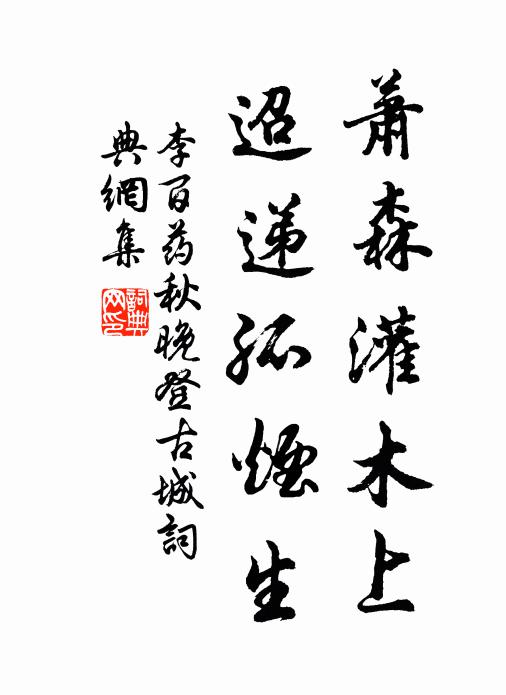 蕭森灌木上
迢遞孤煙生
李百药秋晚登古城詞
典網集
詞典網印